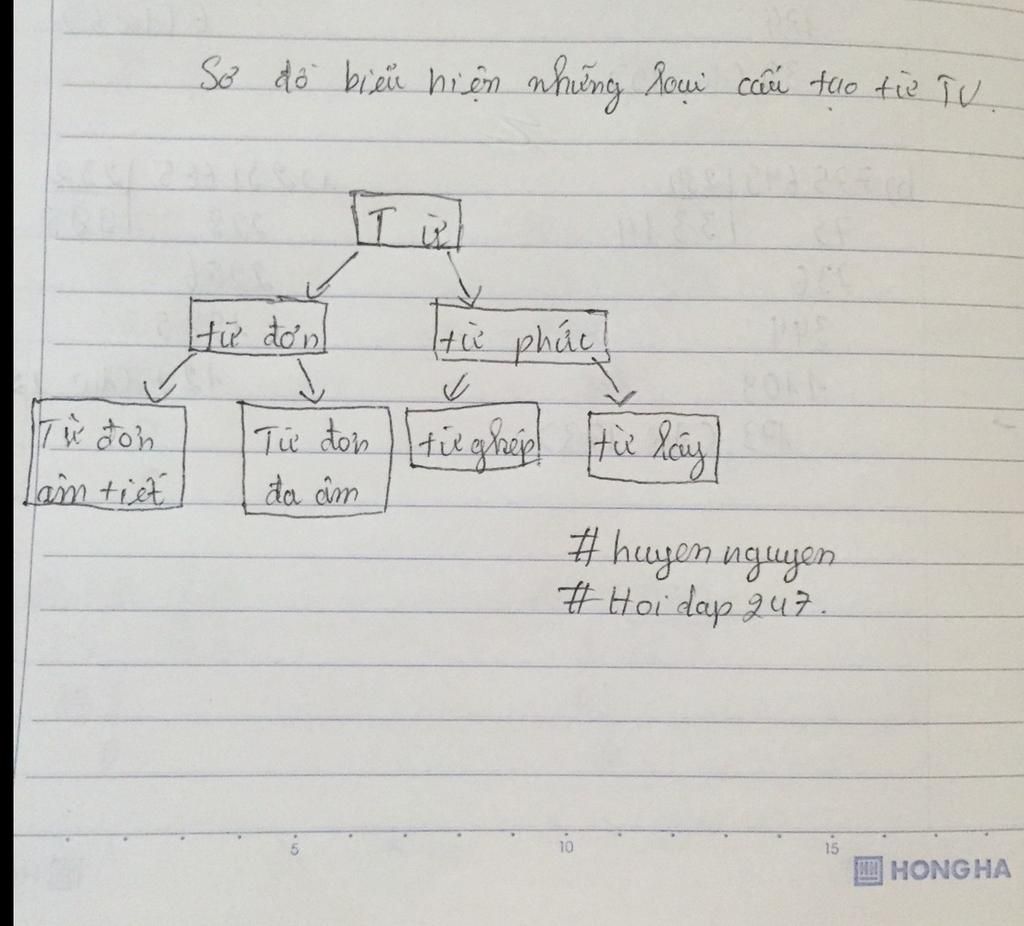 Sơ đồ biểu hiện những loại cấu tạo từ TV.
Từ
từ đơn
từ phức
Từ đơn
âm tiết
Từ đơn
đa âm
từ ghép
từ láy
# huyen nguyen
# Hoi dap 247.
5 10 15
HONG HA